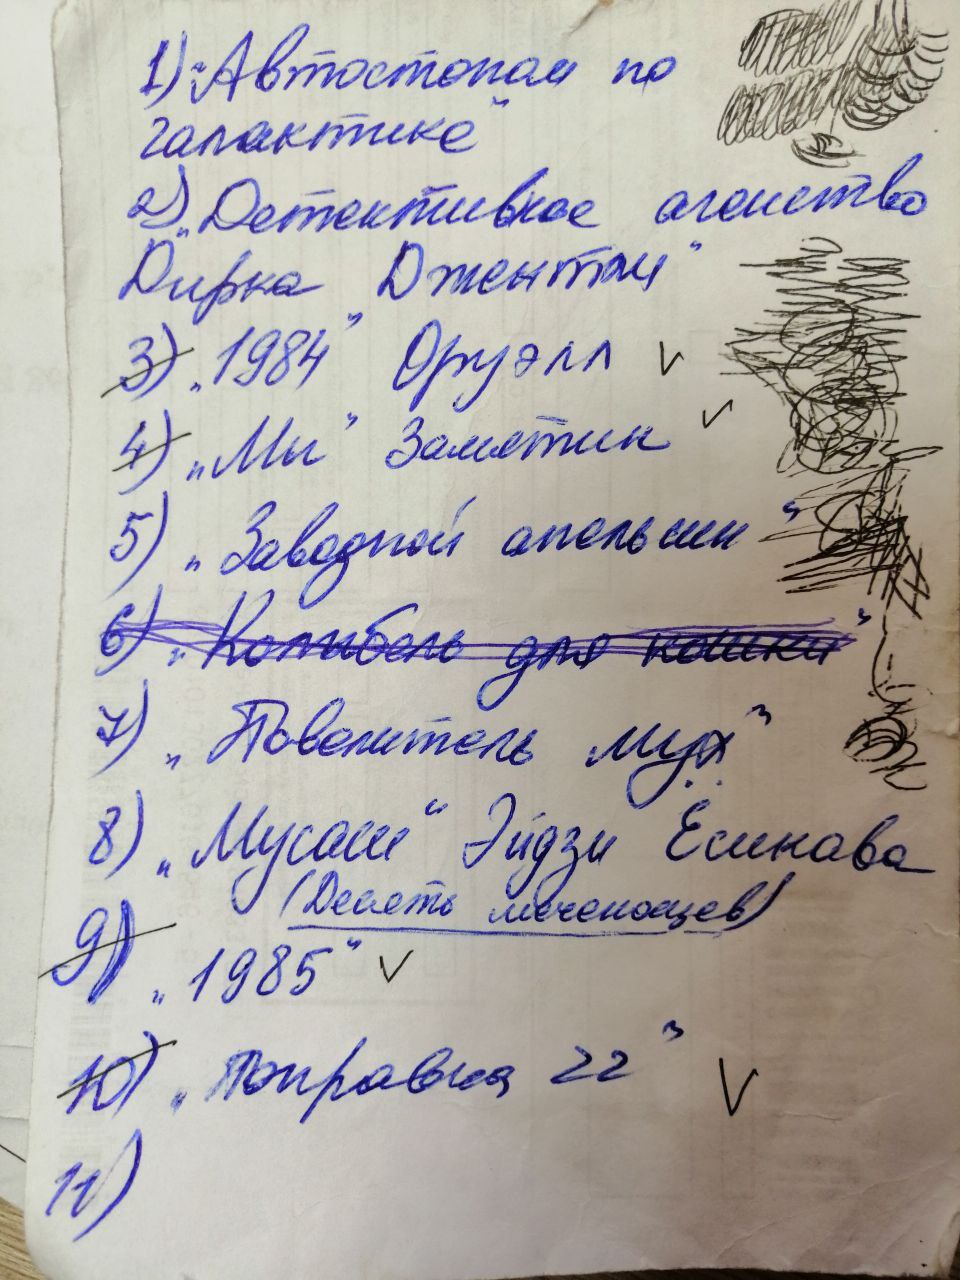 1) „Автостопом по
галактике“
2) „Детективное агенство
Дирка Джентли“
3) „1984“ Оруэлл ✓
4) „Мы“ Замятин ✓
5) „Заводной апельсин“
6) „Колыбель для кошки“
7) „Повелитель мух“
8) „Мусаши“ Эйдзи Ёсикава
(Десять меченосцев)
9) „1985“ ✓
10) „Поправка 22“ ✓
11)